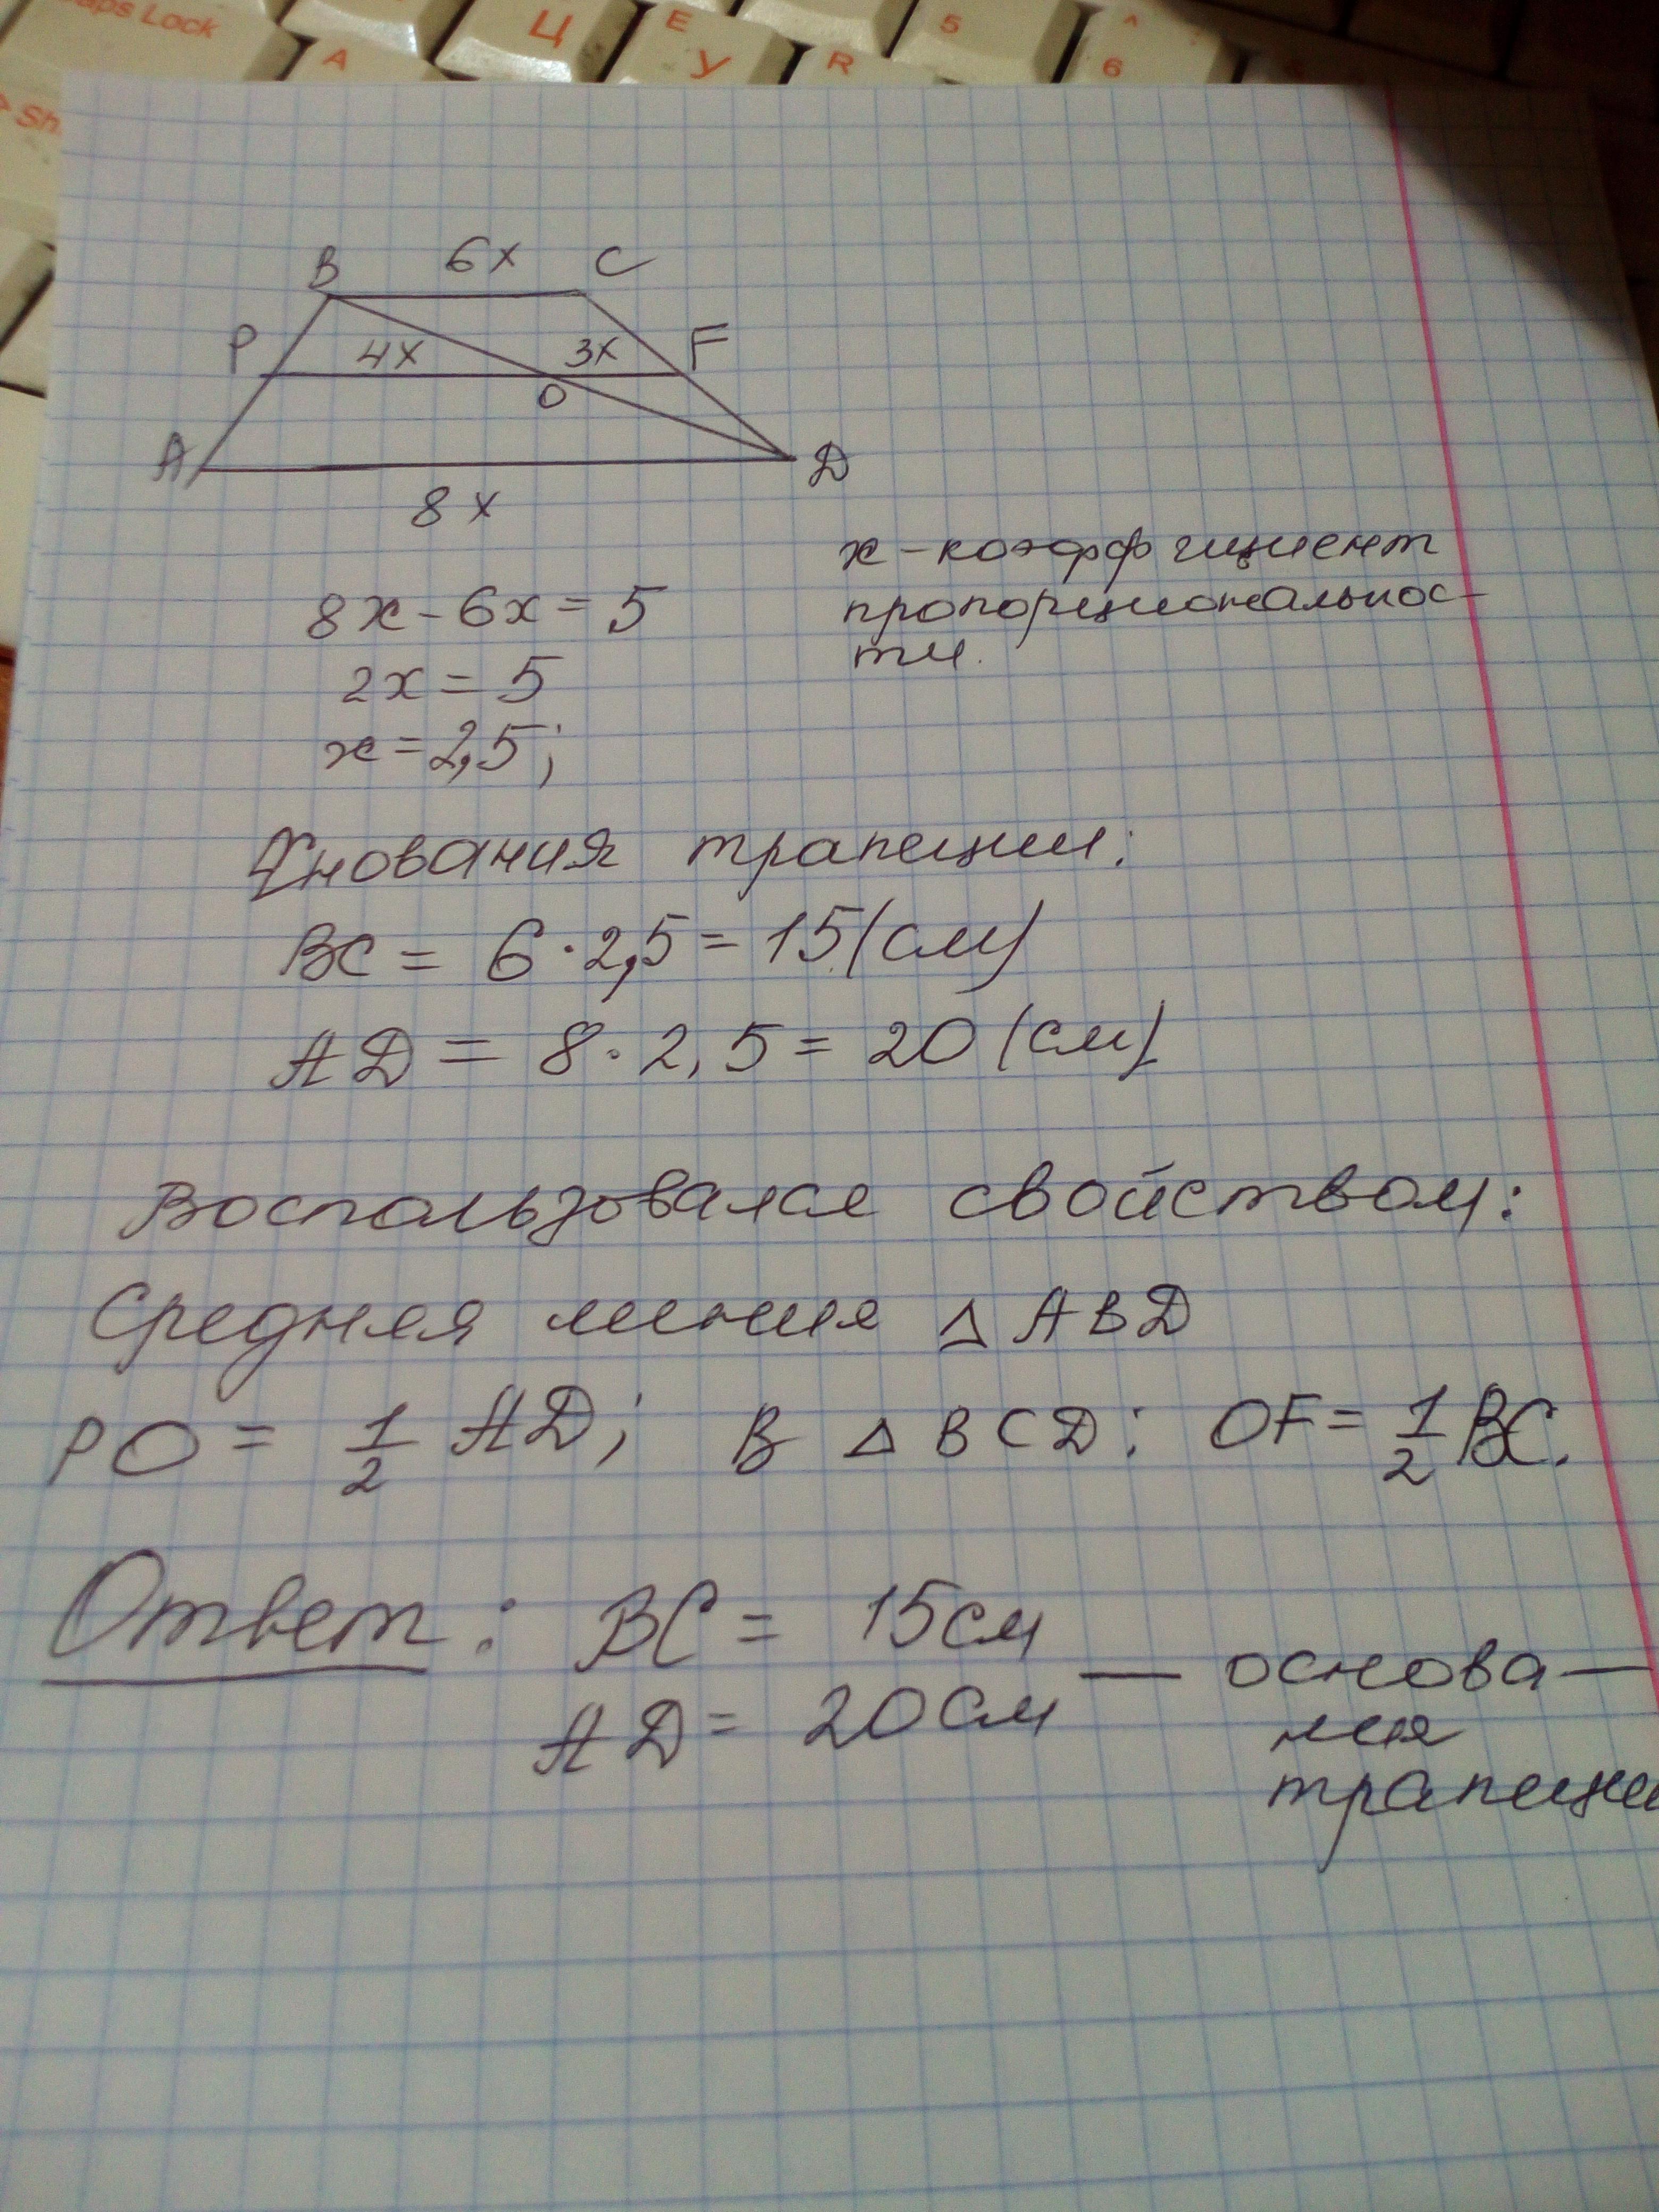 Caps Lock
Ц
E
У
R
5
^
6
A
Sh
B 6x C
P 4x 3x F
O
A D
8x
x - коэффициент
пропорциональнос-
ти.
8x - 6x = 5
2x = 5
x = 2,5;
Основания трапеции:
BC = 6 · 2,5 = 15 (см)
AD = 8 · 2,5 = 20 (см)
Воспользовался свойством:
Средняя линия △ ABD
PO = 1/2 AD; В △ BCD: OF = 1/2 BC.
Ответ: BC = 15 см
AD = 20 см — основа-
ния
трапеции